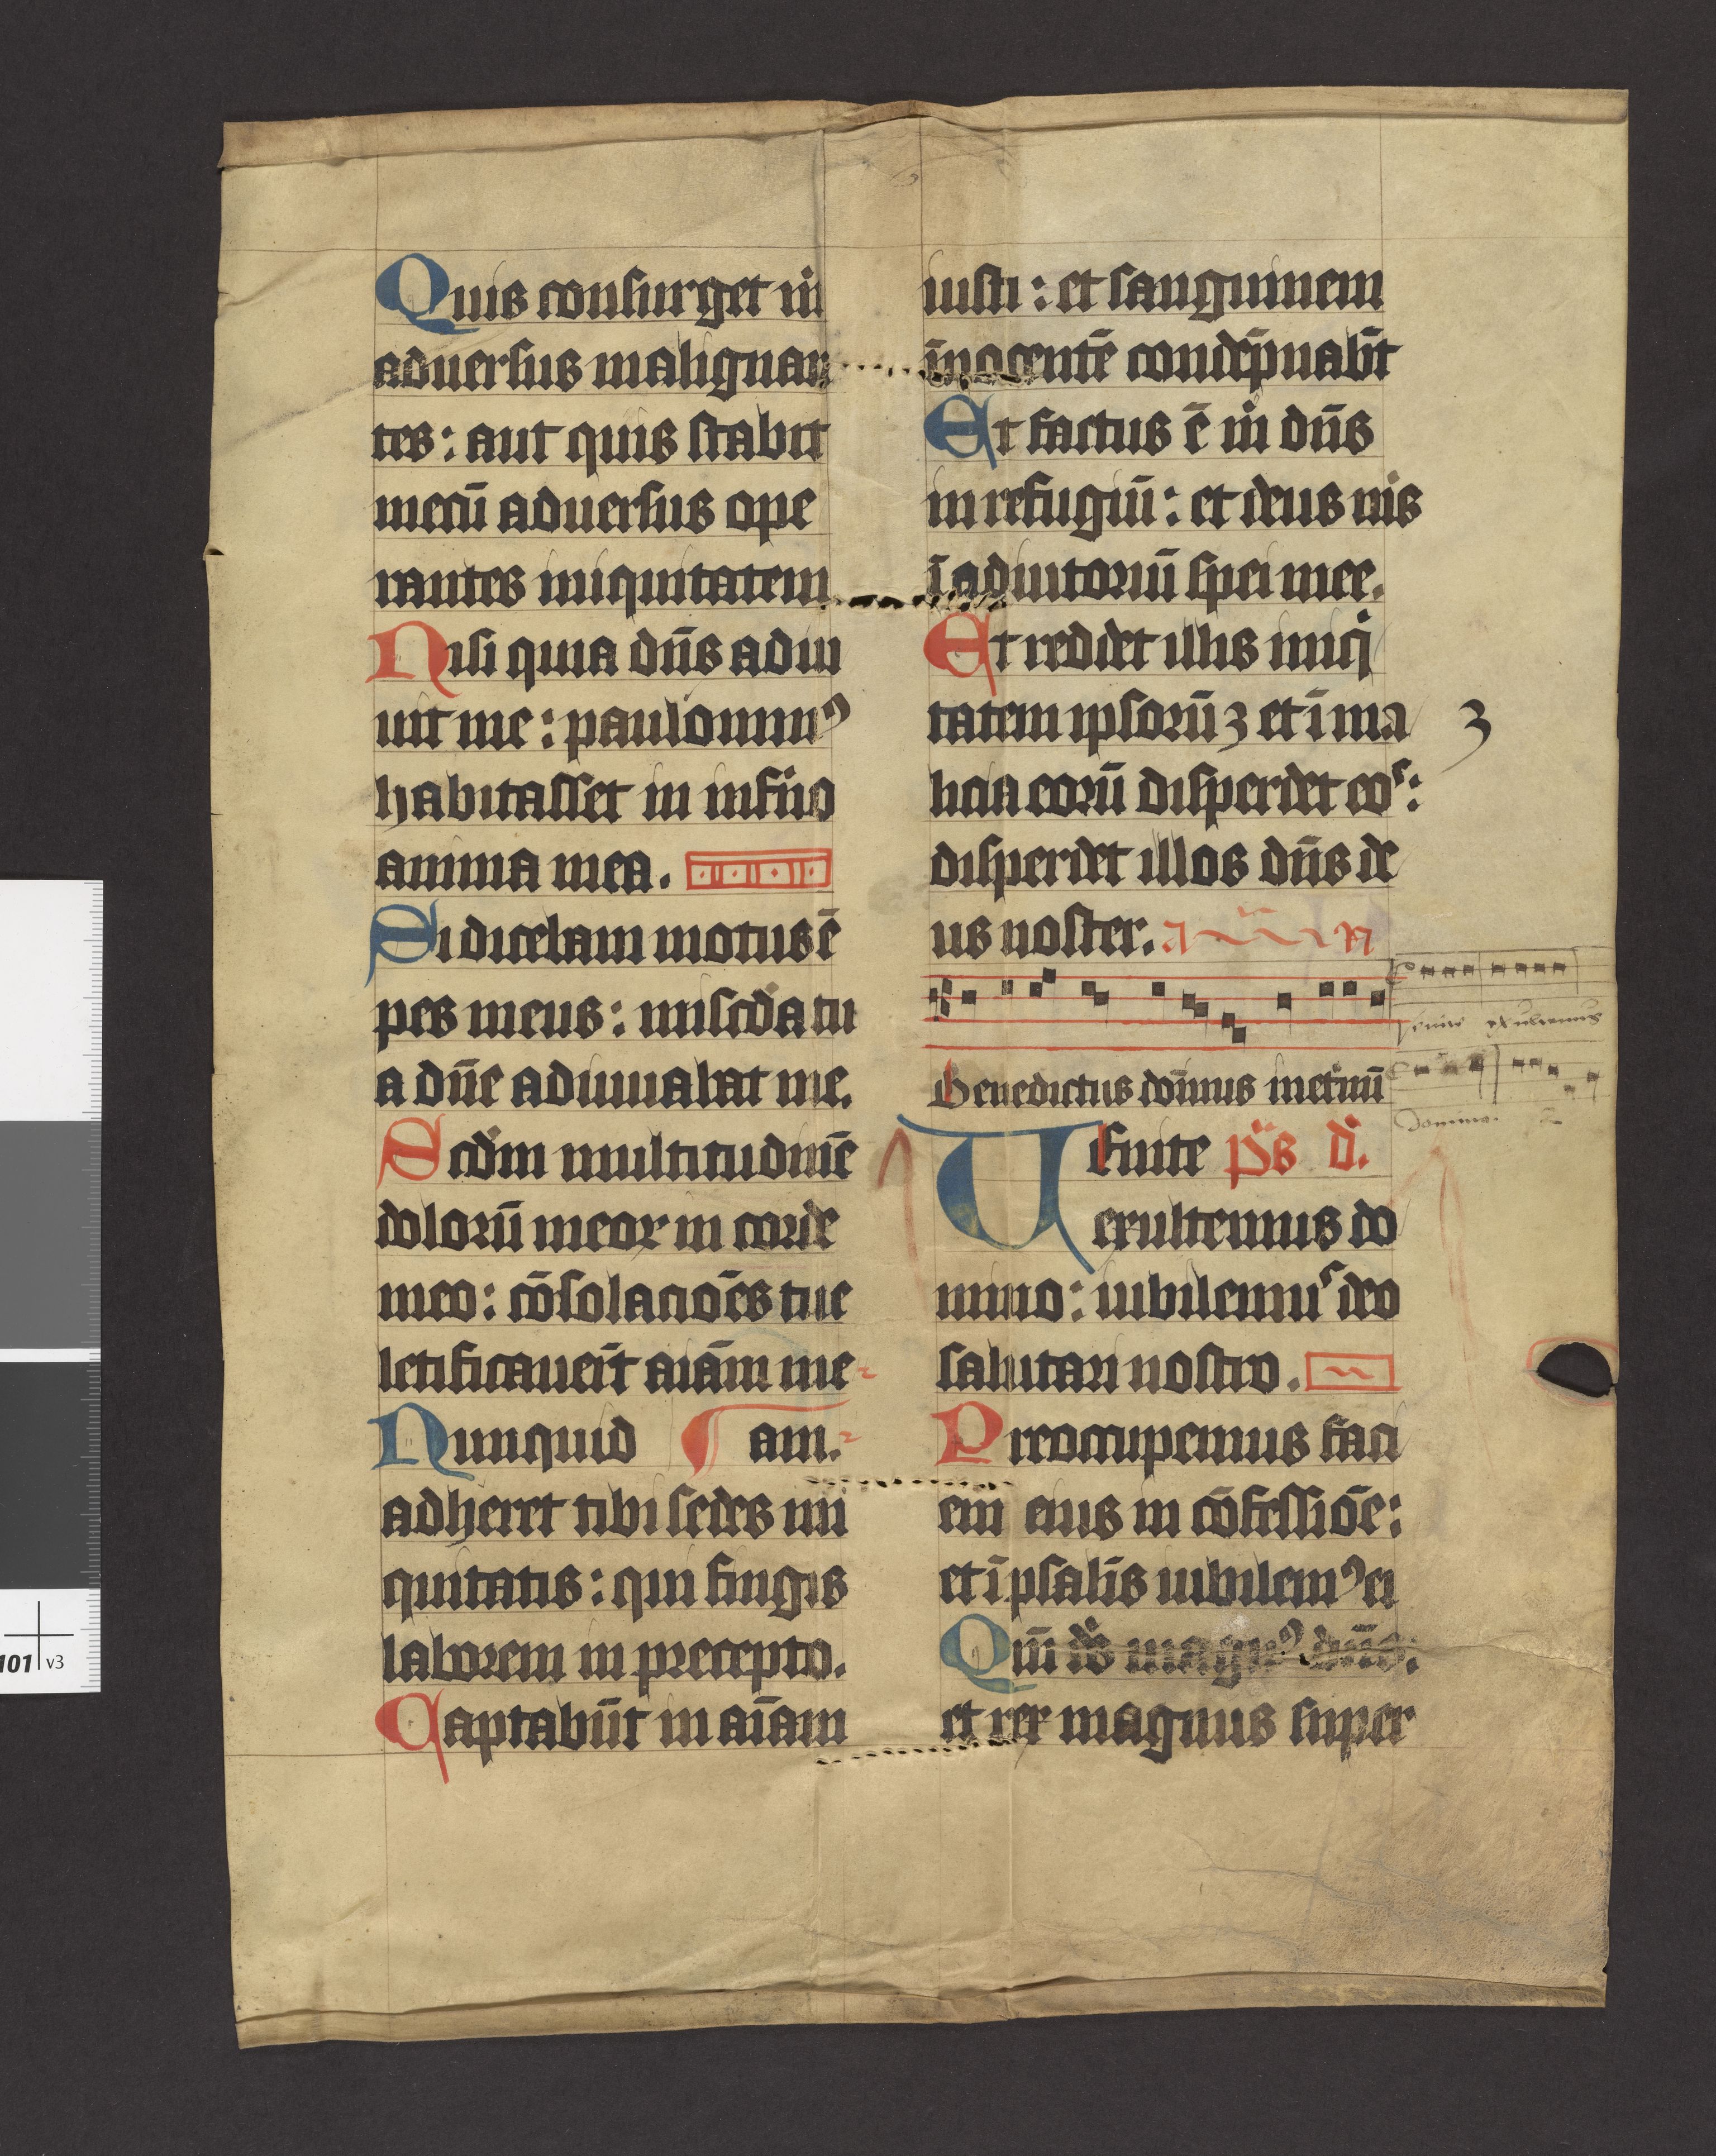 Quis consurget m̄
aduersus malignan
tes: aut quis stabit
mecū aduersus ope
rantes iniquitatem
Nisi quia dn̄s adiu
uit me: paulominꝰ
habitasset in infīno
anima mea.
Si dicebam motus ē
pes meus: misc̄da tu
a dn̄e adiuuabat me.
Scd̄m multitudinē
dolorū meoꝝ in corde
meo: cōsolacioēs tue
letificauer̄t aīam me-
Nunquid ¶ am.-
adheret tibi sedes ini
quitatis: qui fingis
laborem in precepto.
Captabūt in aīam
iusti: et sanguinem
īnocentē condēpnabt̄
Et factus ē m̄ dn̄s
in refugiū: et deus mis
ī adiutoriū spei mee.
Et reddet illis iniqi
tatem ipsorūʒ et ī ma
3
licia eorū disperdet eos:
disperdet illos dn̄s de
us noster.
Benedictus domīnus meū
Uenite ps̄ d.
exultemus do
mino: iubilemus deo
salutari nostro.
Preoccupemus faci
em eius in cōfessiōe:
et ī psalīs iubilemꝰ ei
Qm̄ ds̄ magnꝰ dn̄s:
et rex magnus super
Venite exultemus
Domino.